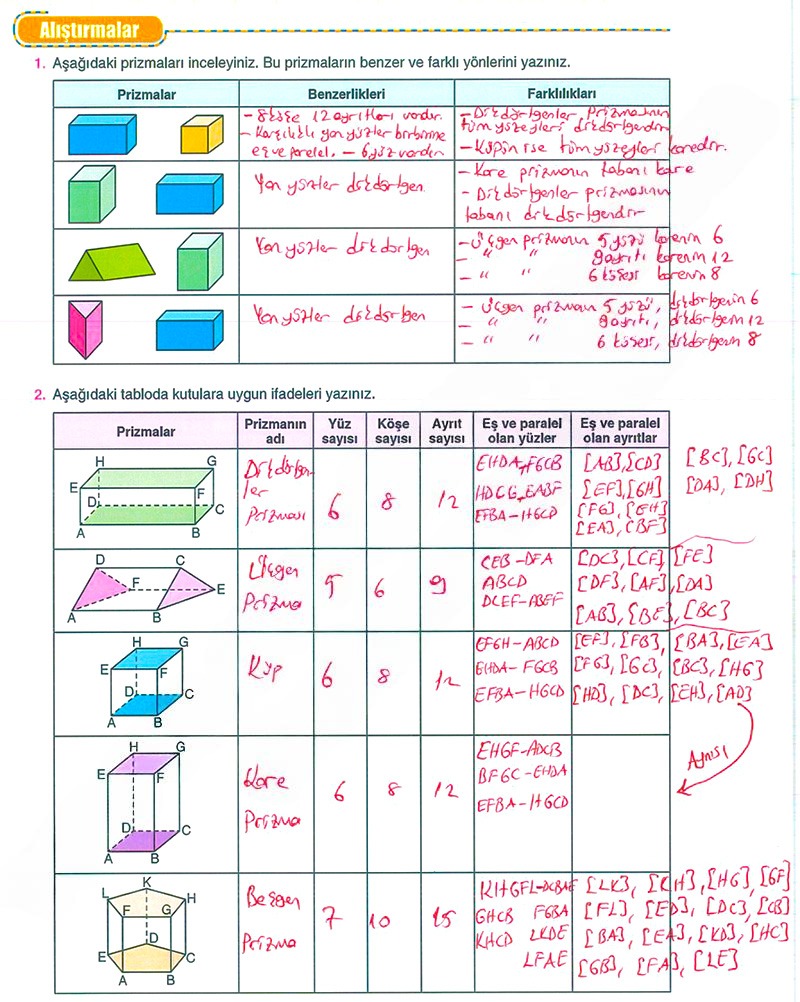 Alıştırmalar
1. Aşağıdaki prizmaları inceleyiniz. Bu prizmaların benzer ve farklı yönlerini yazınız.
Prizmalar Benzerlikleri Farklılıkları
- 8 köşe 12 ayrıtları vardır.
- Karşılıklı yan yüzler birbirine
eş ve paralel. - 6 yüz vardır
- Dikdörtgenler Prizmasının
tüm yüzeyleri dikdörtgendir
- Küpün ise tüm yüzeyleri karedir.
Yan yüzler dikdörtgen
- Kare prizmanın tabanı kare
- Dikdörtgenler prizmasının
tabanı dikdörtgendir
Yan yüzler dikdörtgen
- Üçgen prizmanın 5 yüzü karenin 6
- " " 9 ayrıtı karenin 12
- " " 6 köşesi karenin 8
Yan yüzler dikdörtgen
- Üçgen prizmanın 5 yüzü, dikdörtgenin 6
- " " 9 ayrıtı, dikdörtgenin 12
- " " 6 köşesi, dikdörtgenin 8
2. Aşağıdaki tabloda kutulara uygun ifadeleri yazınız.
Prizmalar Prizmanın adı Yüz sayısı Köşe sayısı Ayrıt sayısı Eş ve paralel olan yüzler Eş ve paralel olan ayrıtlar
H G
E F
D C
A B
Dikdörtgen
ler
Prizması
6 8 12
EHDA, FGCB
HDCG, EABF
EFBA-HGCD
[AB], [CD] [BC], [GC]
[EF], [GH] [DA], [DH]
[FG], [EH]
[EA], [BF]
D C
F E
A B
Üçgen
Prizma
5 6 9
CEB-DFA
ABCD
DCEF-ABEF
[DC], [CF], [FE]
[DF], [AF], [DA]
[AB], [BE], [BC]
H G
E F
D C
A B
Küp
6 8 12
EFGH-ABCD
EHDA-FGCB
EFBA-HGCD
[EF], [FB], [BA], [EA]
[FG], [GC], [BC], [HG]
[HD], [DC], [EH], [AD]
H G
E F
D C
A B
Kare
Prizma
6 8 12
EHGF-ADCB
BFGC-EHDA
EFBA-HGCD
Aynısı
K
L H
F G
D
E C
A B
Beşgen
Prizma
7 10 15
KHGFL-DCBAE
GHCB FGBA
KHCD LKDE
LFAE
[LK], [KH], [HG], [GF]
[FL], [ED], [DC], [CB]
[BA], [EA], [KD], [HC]
[GB], [FA], [LE]